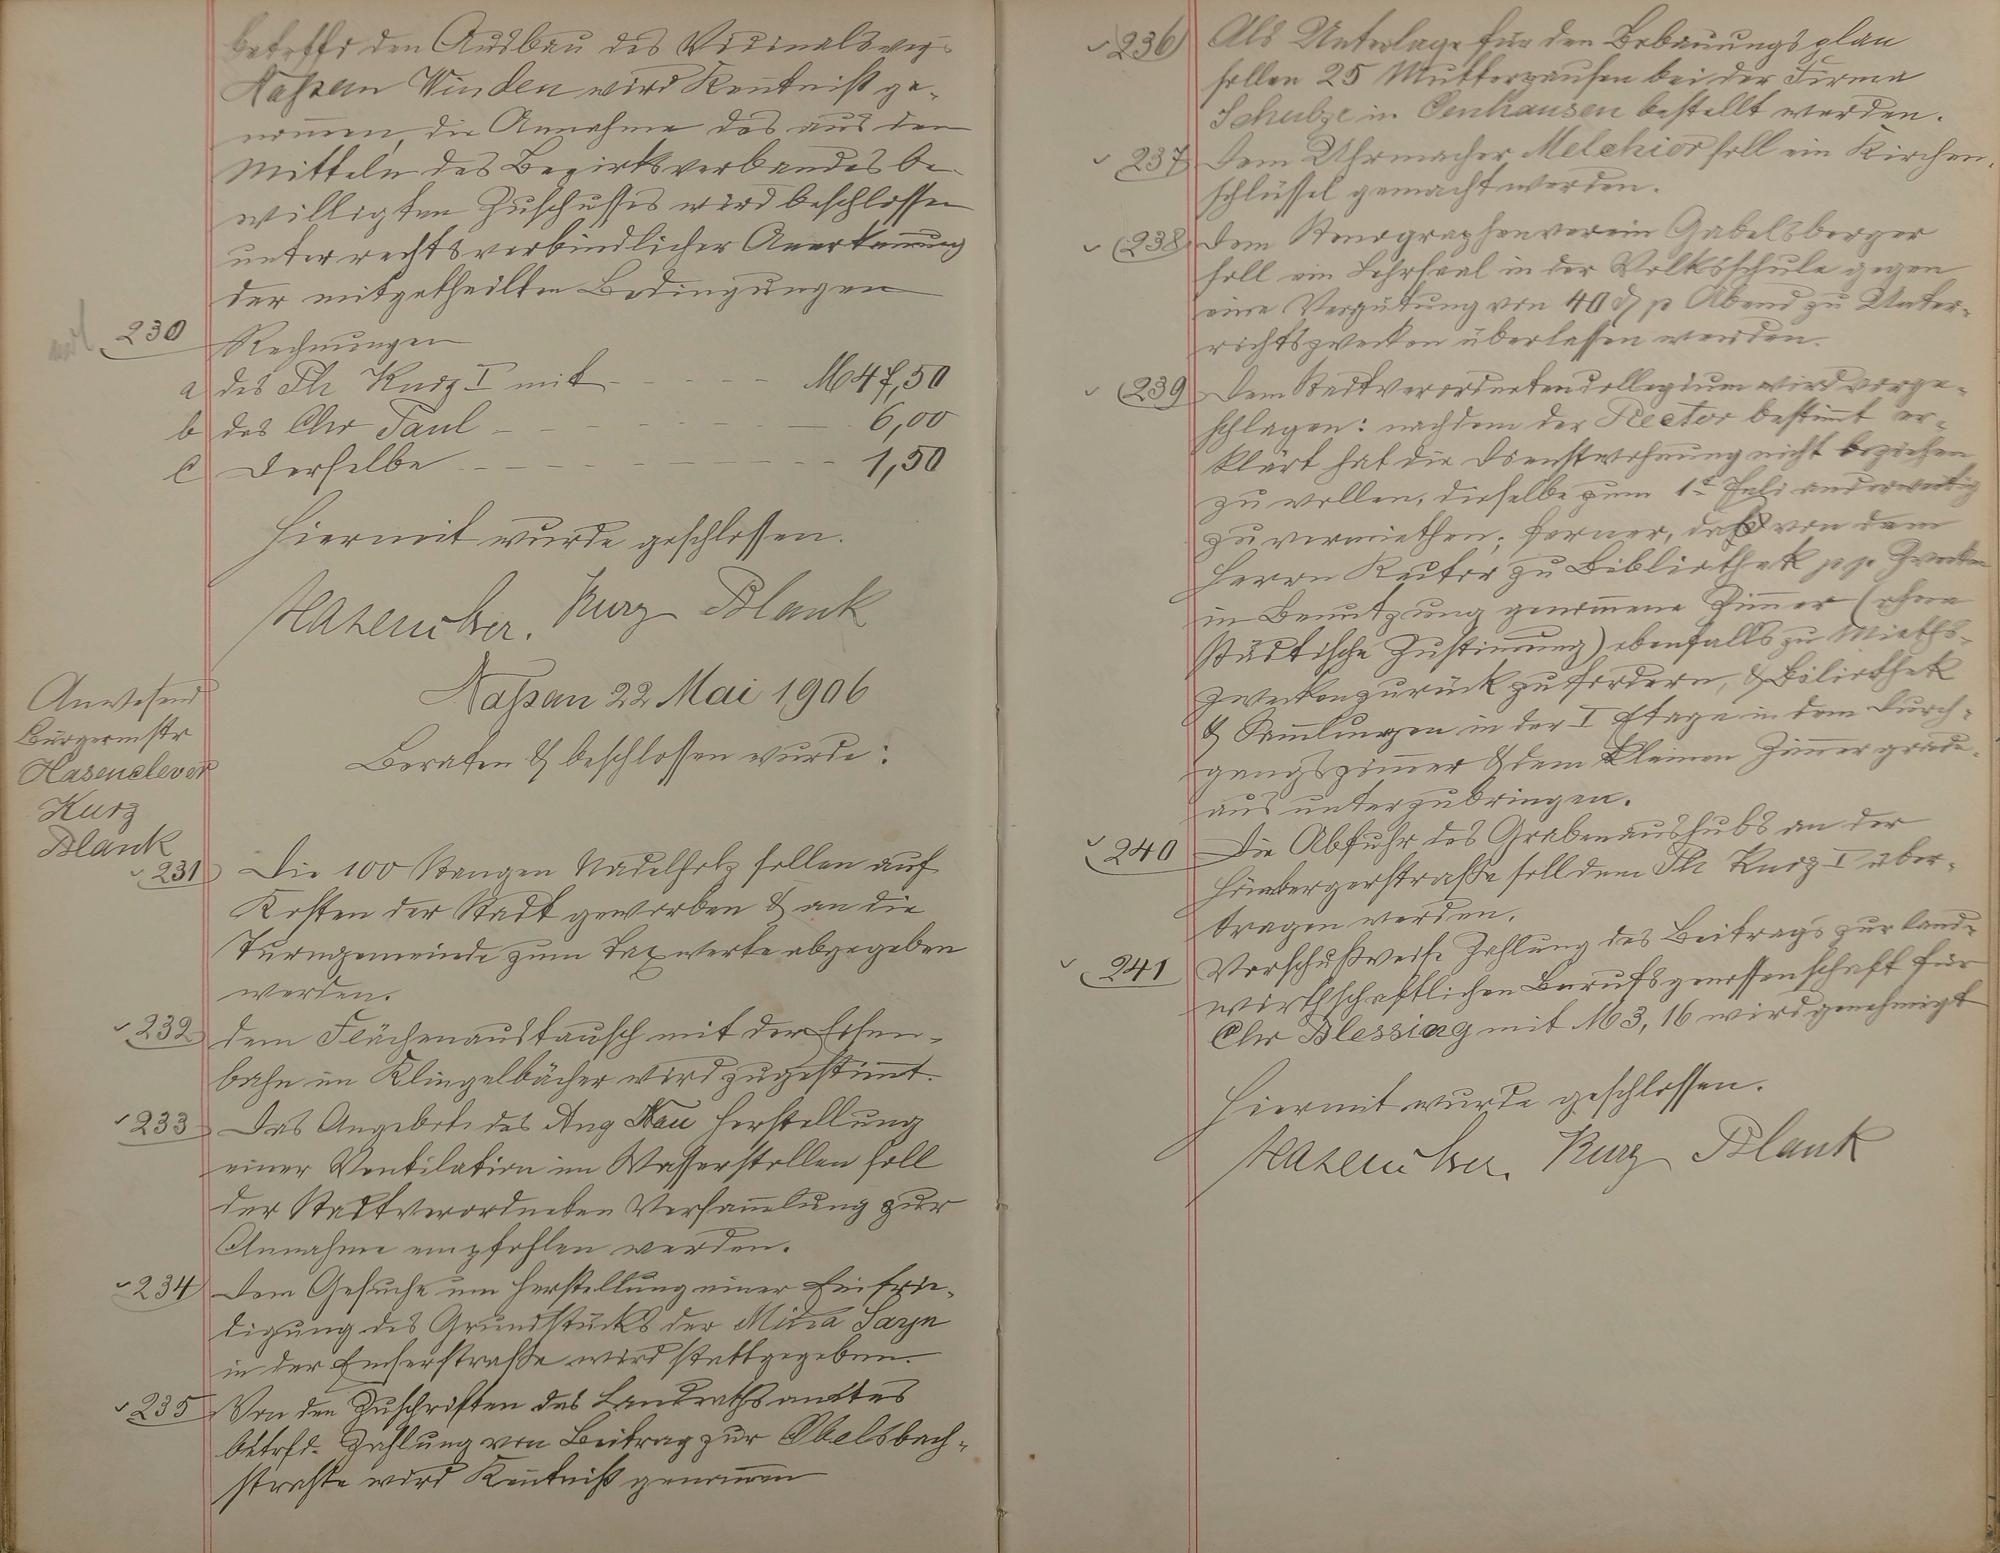 betreffs den Ausbau des Vicinalswegs
Nassau Winden wird Kenntniß ge-
nommen, die Annahme des aus den
Mitteln des Bezirksverbandes be-
willigten Zuschusses wird beschlossen
unter rechtsverbindlicher Anerkennung
der mitgetheilten Bedingungen
230 Rechnungen
a des Ph Kurz I mit M 47,50
b des Chr Paul 6,00
c Derselbe 1,50
Hiermit wurde geschlossen.
Hasenclever. Kurz Blank
Nassau 22 Mai 1906
Anwesend
Bürgermstr
Hasenclever
Kurz
Blank
Beraten & beschlossen wurde:
231 Die 100 Stangen Nadelholz sollen auf
Kosten der Stadt geworben & an die
Turngemeinde zum Taxwerte abgegeben
werden.
232 dem Flächenaustausch mit der Eisen-
bahn im Klingelbächer wird zugestimmt.
233 Das Angebot des Aug Nau Herstellung
einer Ventilation im Wasserstollen soll
der Stadtverordneten Versammlung zur
Annahme empfohlen werden.
234 Dem Gesuche um Herstellung einer Einfrie-
digung des Grundstücks der Mina
in der Emserstraße wird stattgegeben.
235 Von den Zuschriften des Landrathsamtes
betrfd. Zahlung von Beitrag zur Obelsbach-
straße wird Kenntniß genommen
236 Als Unterlage für den Bebauungsplan
sollen 25 Mutterpausen bei der Firma
Schulze in bestellt werden.
237 Dem Uhrmacher Melchior soll ein Kirchen-
schlüssel gemacht werden.
238 Dem Stenographenverein Gabelsberger
soll ein Lehrsaal in der Volksschule gegen
eine Vergütung von 40 ₰ p Abend zu Unter-
richtszwecken überlassen werden.
239 Dem Stadtverordnetencollegium wird vorge-
schlagen: nachdem der Rector bestimmt er-
klärt hat die Dienstwohnung nicht beziehen
zu wollen, dieselbe zum 1t Juli anderweitig
zu vermiethen; ferner, daß von dem
Herrn Rector zu Bibliothek pp Zwecken
in Benutzung genommene Zimmer (ohne
städtische Zustimmung) ebenfalls zu Mieths-
zwecken zurück zu fordern, & Biliothek
& Sammlungen in der I Etage in dem Durch-
gangszimmer & dem kleinen Zimmer grade-
aus unterzubringen.
240 Die Abfuhr des Grabenaushubs an der
Hömbergerstraße soll dem Ph Kurz I über-
tragen werden.
241 Vorschußweise Zahlung des Beitrags zur land-
wirthschaftlichen Berufsgenossenschaft für
Chr Blessing mit M 3,16 wird genehmigt
Hiermit wurde geschlossen.
Hasenclever. Kurz Blank